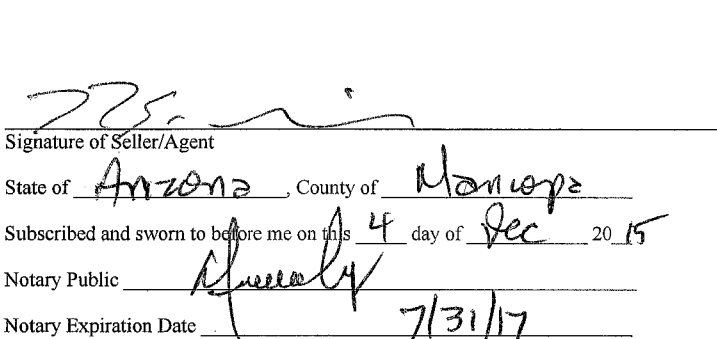 Signature of Seller/Agent
State of Arizona, County of Maricopa
Subscribed and sworn to before me on this 4 day of Dec 2015
Notary Public
Notary Expiration Date 7/31/17